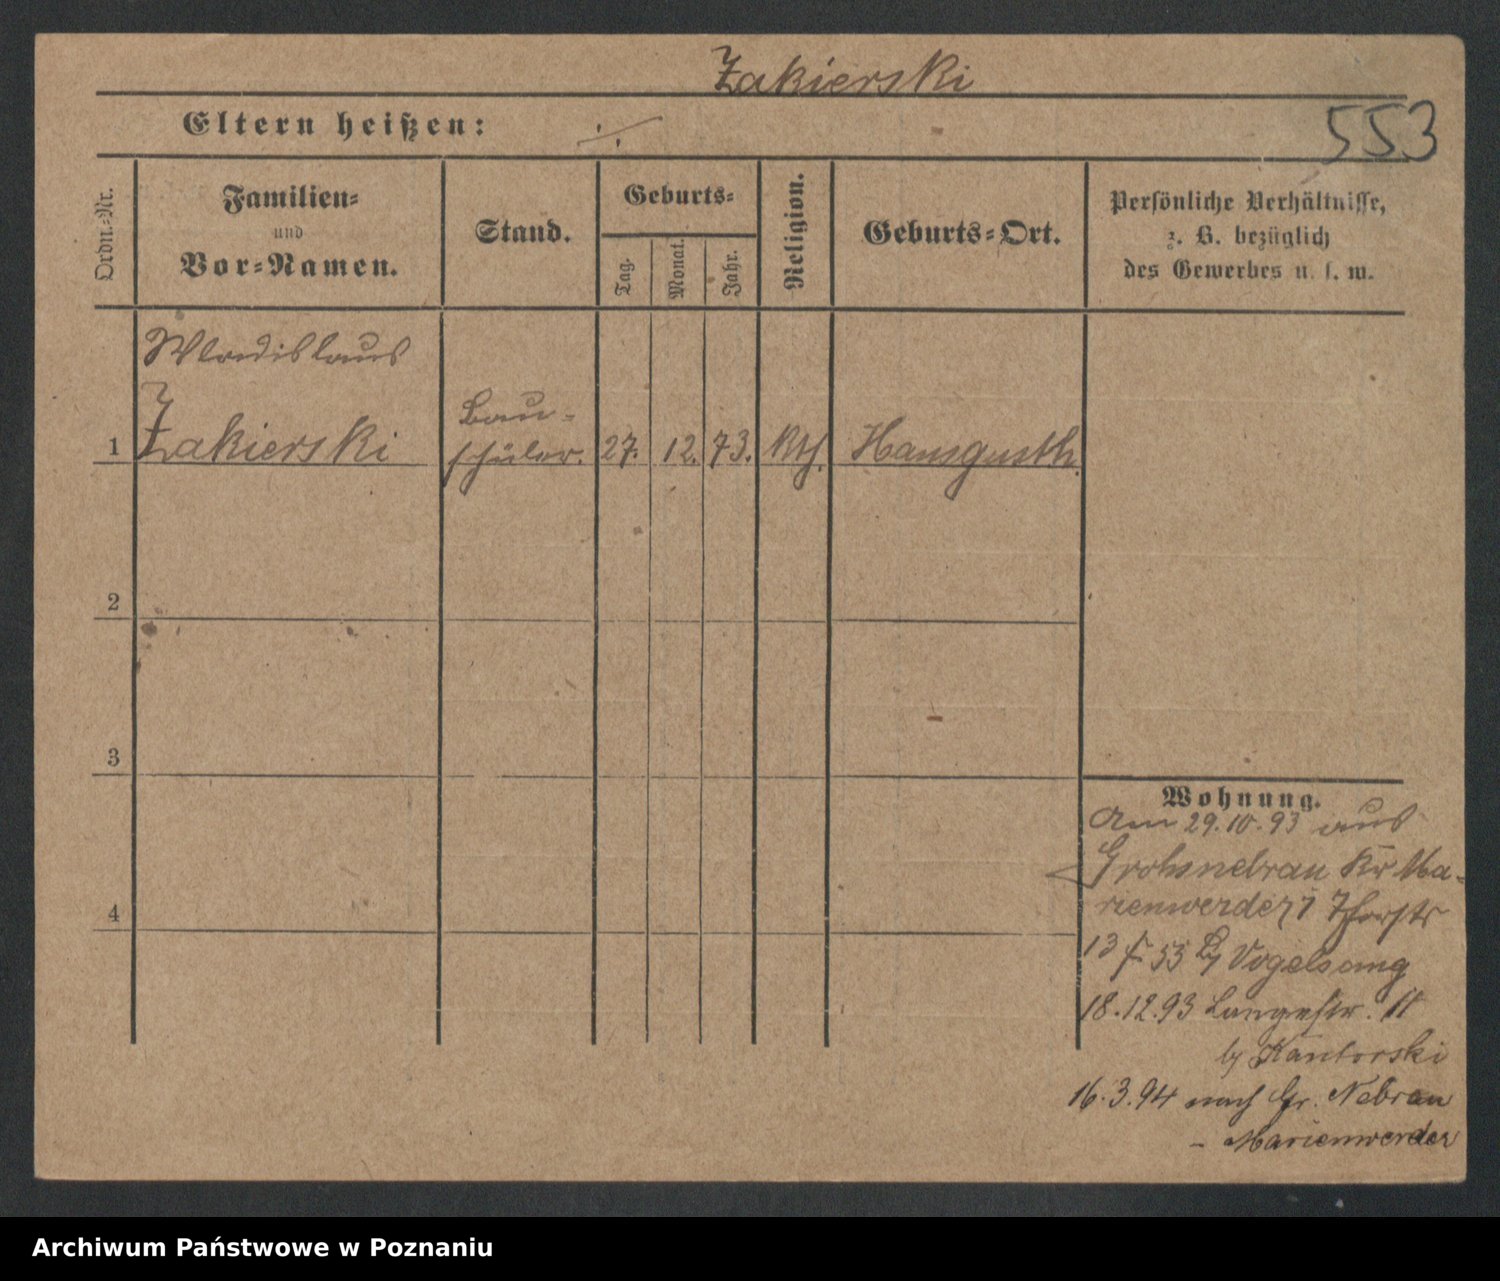 Zakierski
553
Eltern heißen: ./.
Ordn.-Nr.
Familien-
und
Vor-Namen.
Stand.
Geburts-
Tag.
Monat.
Jahr.
Religion.
Geburts-Ort.
Persönliche Verhältnisse,
z. B. bezüglich
des Gewerbes u. s. w.
Wladislaus
1 Zakierski
Bau-
schüler.
27. 12. 73. Kth. Hansguth
2
3
4
Wohnung.
Am 29.10.93 aus
Grohsnebrau Kr Ma-
rienwerder
13 55 by Vogelsang
18.12.93 Langestr. 11
by Kantorski
16.3.94 nach Gr. Nebrau
- Marienwerder
Archiwum Państwowe w Poznaniu